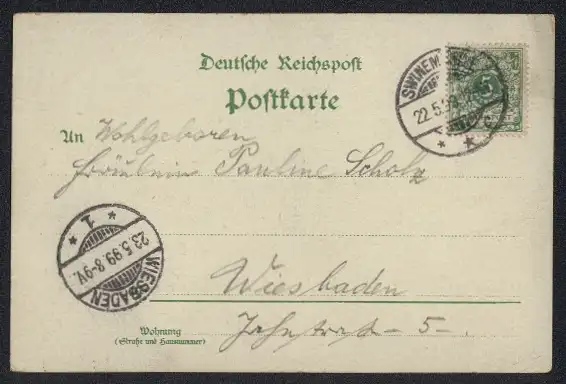 Deutsche Reichspost
Postkarte
An Wohlgeboren
Fräulein Pauline Scholz
SWINEMÜNDE
22.5.99
* * c
5
* 1 *
23.5.99.8-9V.
WIESBADEN
Wiesbaden
Jahnstraße - 5 -.
Wohnung
(Straße und Hausnummer)